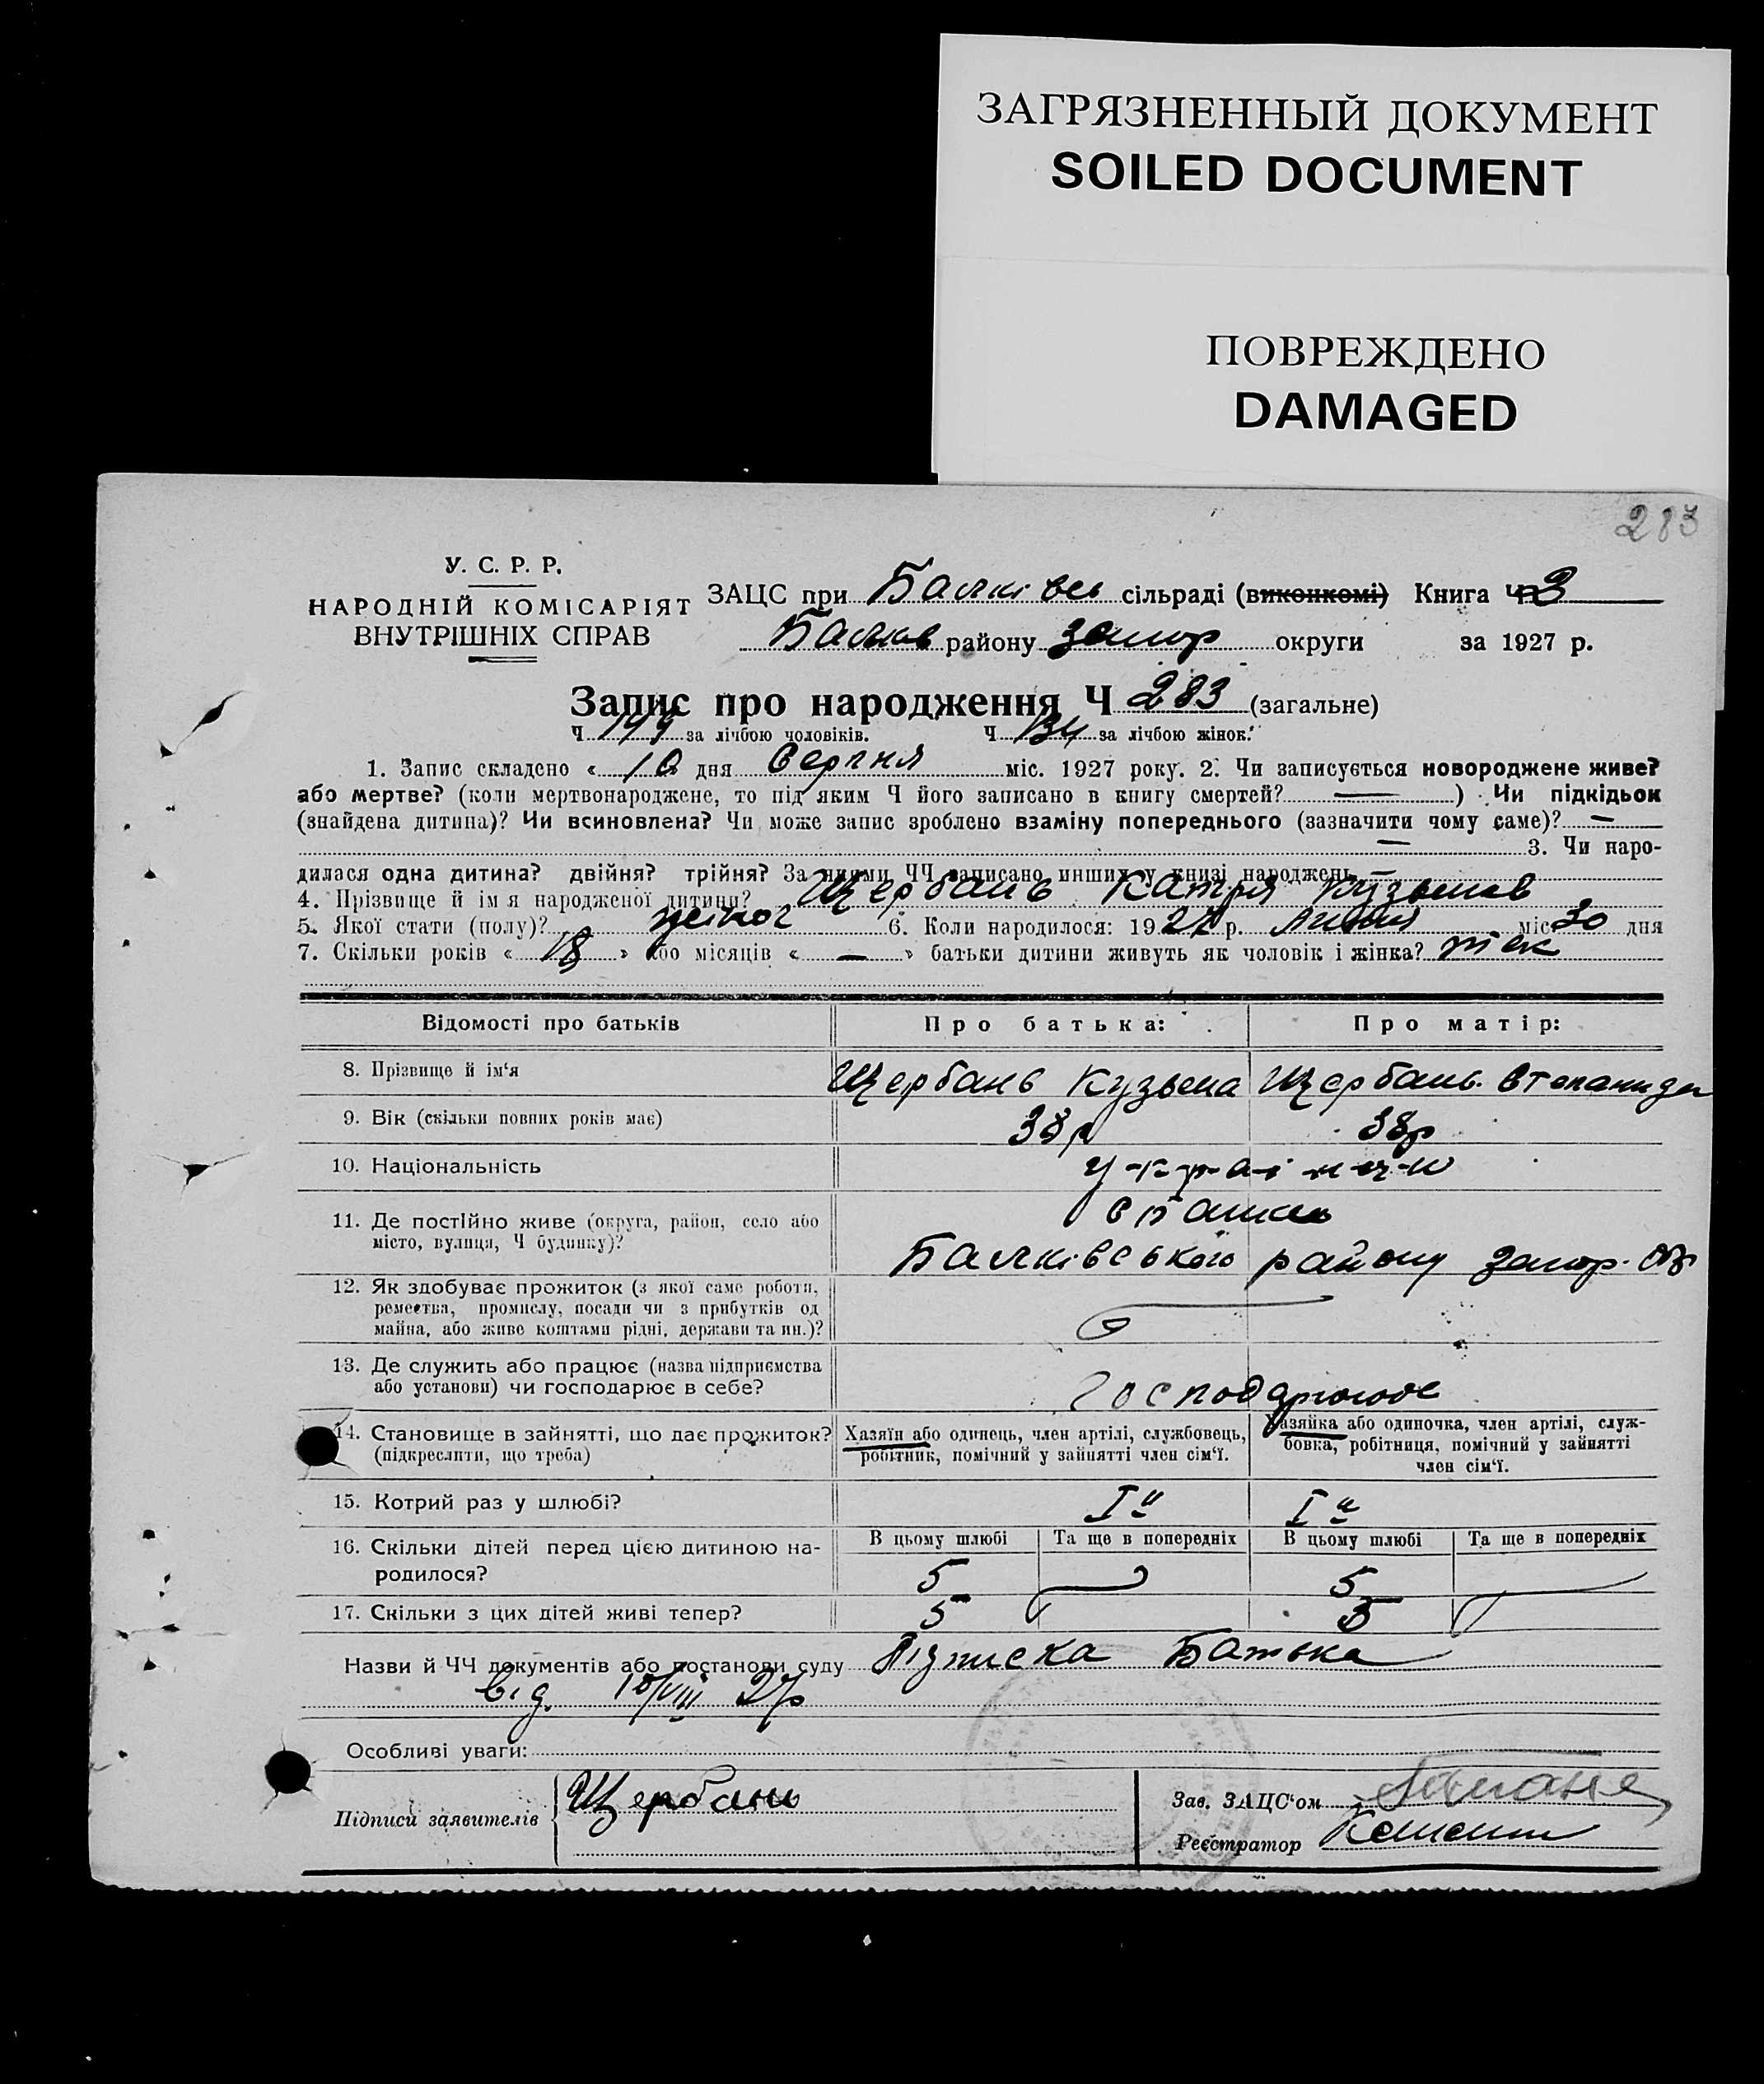 ЗАГРЯЗНЕННЫЙ ДОКУМЕНТ
SOILED DOCUMENT
ПОВРЕЖДЕНО
DAMAGED
283
У. С. Р. Р.
НАРОДНІЙ КОМІСАРІЯТ
ВНУТРІШНІХ СПРАВ
ЗАЦС при Балківсь сільраді (виконкомі) Книга Ч 3
Балків району запор округи за 1927 р.
Запис про народження Ч 283 (загальне)
Ч 149 за лічбою чоловіків. Ч 134 за лічбою жінок.
1. Запис складено « 10 дня серпня міс. 1927 року. 2. Чи записується новороджене живе?
або мертве? (коли мертвонароджене, то під яким Ч його записано в книгу смертей? —) Чи підкідьок
(знайдена дитина)? Чи всиновлена? Чи може запис зроблено взаміну попереднього (зазначити чому саме)? —
— 3. Чи наро-
дилася одна дитина? двійня? трійня? За якими ЧЧ записано инших у книзі народжень
4. Прізвище й ім я народженої дитини? Щербань Катря Кузьмов
5. Якої стати (полу)? жіноч 6. Коли народилося: 1927 р. липня міс 30 дня
7. Скільки років « 18 » або місяців « — » батьки дитини живуть як чоловік і жінка?
Відомості про батьків Про батька: Про матір:
8. Прізвище й ім‘я Щербань Кузьма Щербань Степанида
9. Вік (скільки повних років має) 38 р 38 р
10. Національність у-к-р-а-ї-н-ц-и
11. Де постійно живе (округа, район, село або
місто, вулиця, Ч будинку)?
Балківського району запор.
12. Як здобуває прожиток (з якої саме роботи,
ремества, промислу, посади чи з прибутків од
майна, або живе коштами рідні, держави та ин.)?
13. Де служить або працює (назва підприємства
або установи) чи господарює в себе?
14. Становище в зайнятті, що дає прожиток?
(підкреслити, що треба)
Хазяїн або одинець, член артілі, службовець,
робітник, помічний у зайнятті член сім‘ї.
Хазяйка або одиночка, член артілі, служ-
бовка, робітниця, помічний у зайнятті
член сім‘ї.
15. Котрий раз у шлюбі? Iй Iй
16. Скільки дітей перед цією дитиною на-
родилося?
В цьому шлюбі Та ще в попередніх В цьому шлюбі Та ще в попередніх
5 5
17. Скільки з цих дітей живі тепер? 5 5
Назви й ЧЧ документів або постанови суду Підписка Батька
Від 10/VIII 27р
Особливі уваги:
Підписи заявителів Щербань
Зав. ЗАЦС‘ом
Реєстратор